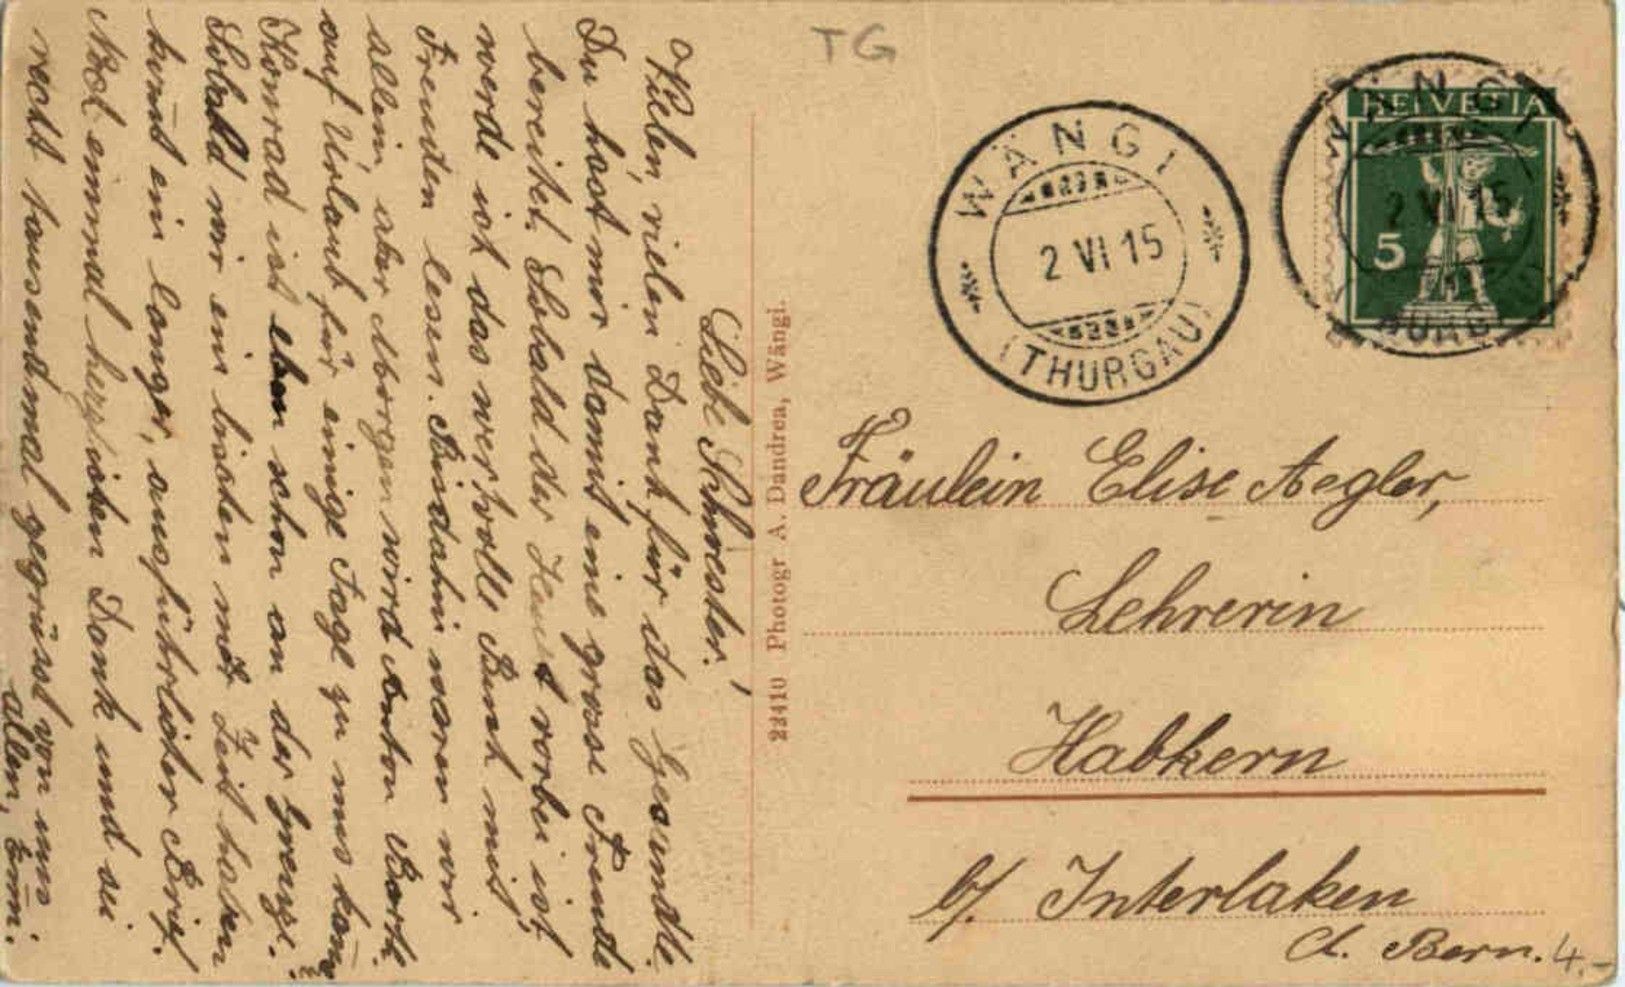 TG
WÄNGI
2 VI 15
(THURGAU)
HELVETIA
5
WÄNGI
2 VI 15
(THURGAU)
Fräulein Elise Aegler,
Lehrerin
Habkern
b/ Interlaken
Ct. Bern.
4.-
22410 Photogr A. Dandrea, Wängi.
Liebe Schwester!
Vielen, vielen Dank für das Gesandte.
Du hast mir damit eine grosse Freude
bereitet. Sobald der vorbei ist,
werde ich das wertvolle Buch mit
Freuden lesen. Bis dahin waren wir
allein, aber Morgen wird
auf Urlaub für einige Tage zu uns
Konrad ist eben schon an der Grenze.
Sobald wir ein bischen mehr Zeit haben
kommt ein langer, ausführlicher Brief.
Noch einmal herzlichen Dank und sei
recht tausendmal gegrüsst von uns
allen, Emmi.